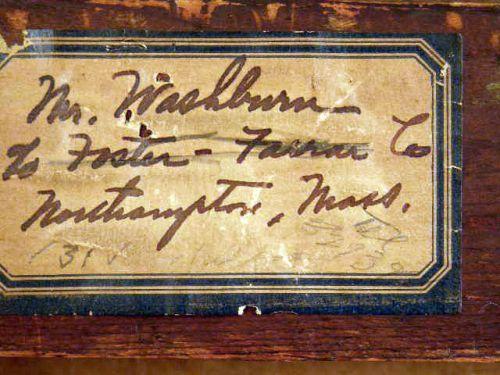 Mr. Washburn
to Foster-Farrar Co
Northampton, Mass.